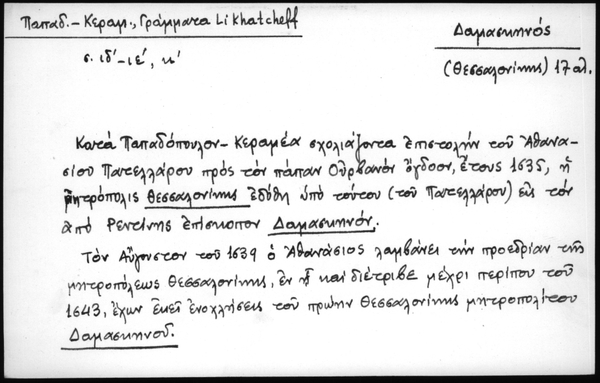 Παπαδ.-Κεραμ., Γράμματα Likhatcheff
Δαμασκηνός
σ. ιδ'-ιε', κ'
(Θεσσαλονίκης) 17 αἰ.
Κατά Παπαδόπουλον-Κεραμέα σχολιάζοντα ἐπιστολήν τοῦ Ἀθανα-
σίου Πατελλάρου πρός τόν πάπαν Οὐρβανόν ὄγδοον, ἔτους 1635, ἡ
μητρόπολις Θεσσαλονίκης ἐδόθη ὑπό τούτου (τοῦ Πατελλάρου) εἰς τόν
ἀπό Ρεντίνης ἐπίσκοπον Δαμασκηνόν.
Τόν Αὔγουστον τοῦ 1639 ὁ Ἀθανάσιος λαμβάνει τήν προεδρίαν τῆς
μητροπόλεως Θεσσαλονίκης, ἐν ᾗ καί διέτριβε μέχρι περίπου τοῦ
1643, ἔχων ἐκεῖ ἐνοχλήσεις τοῦ πρώην Θεσσαλονίκης μητροπολίτου
Δαμασκηνοῦ.